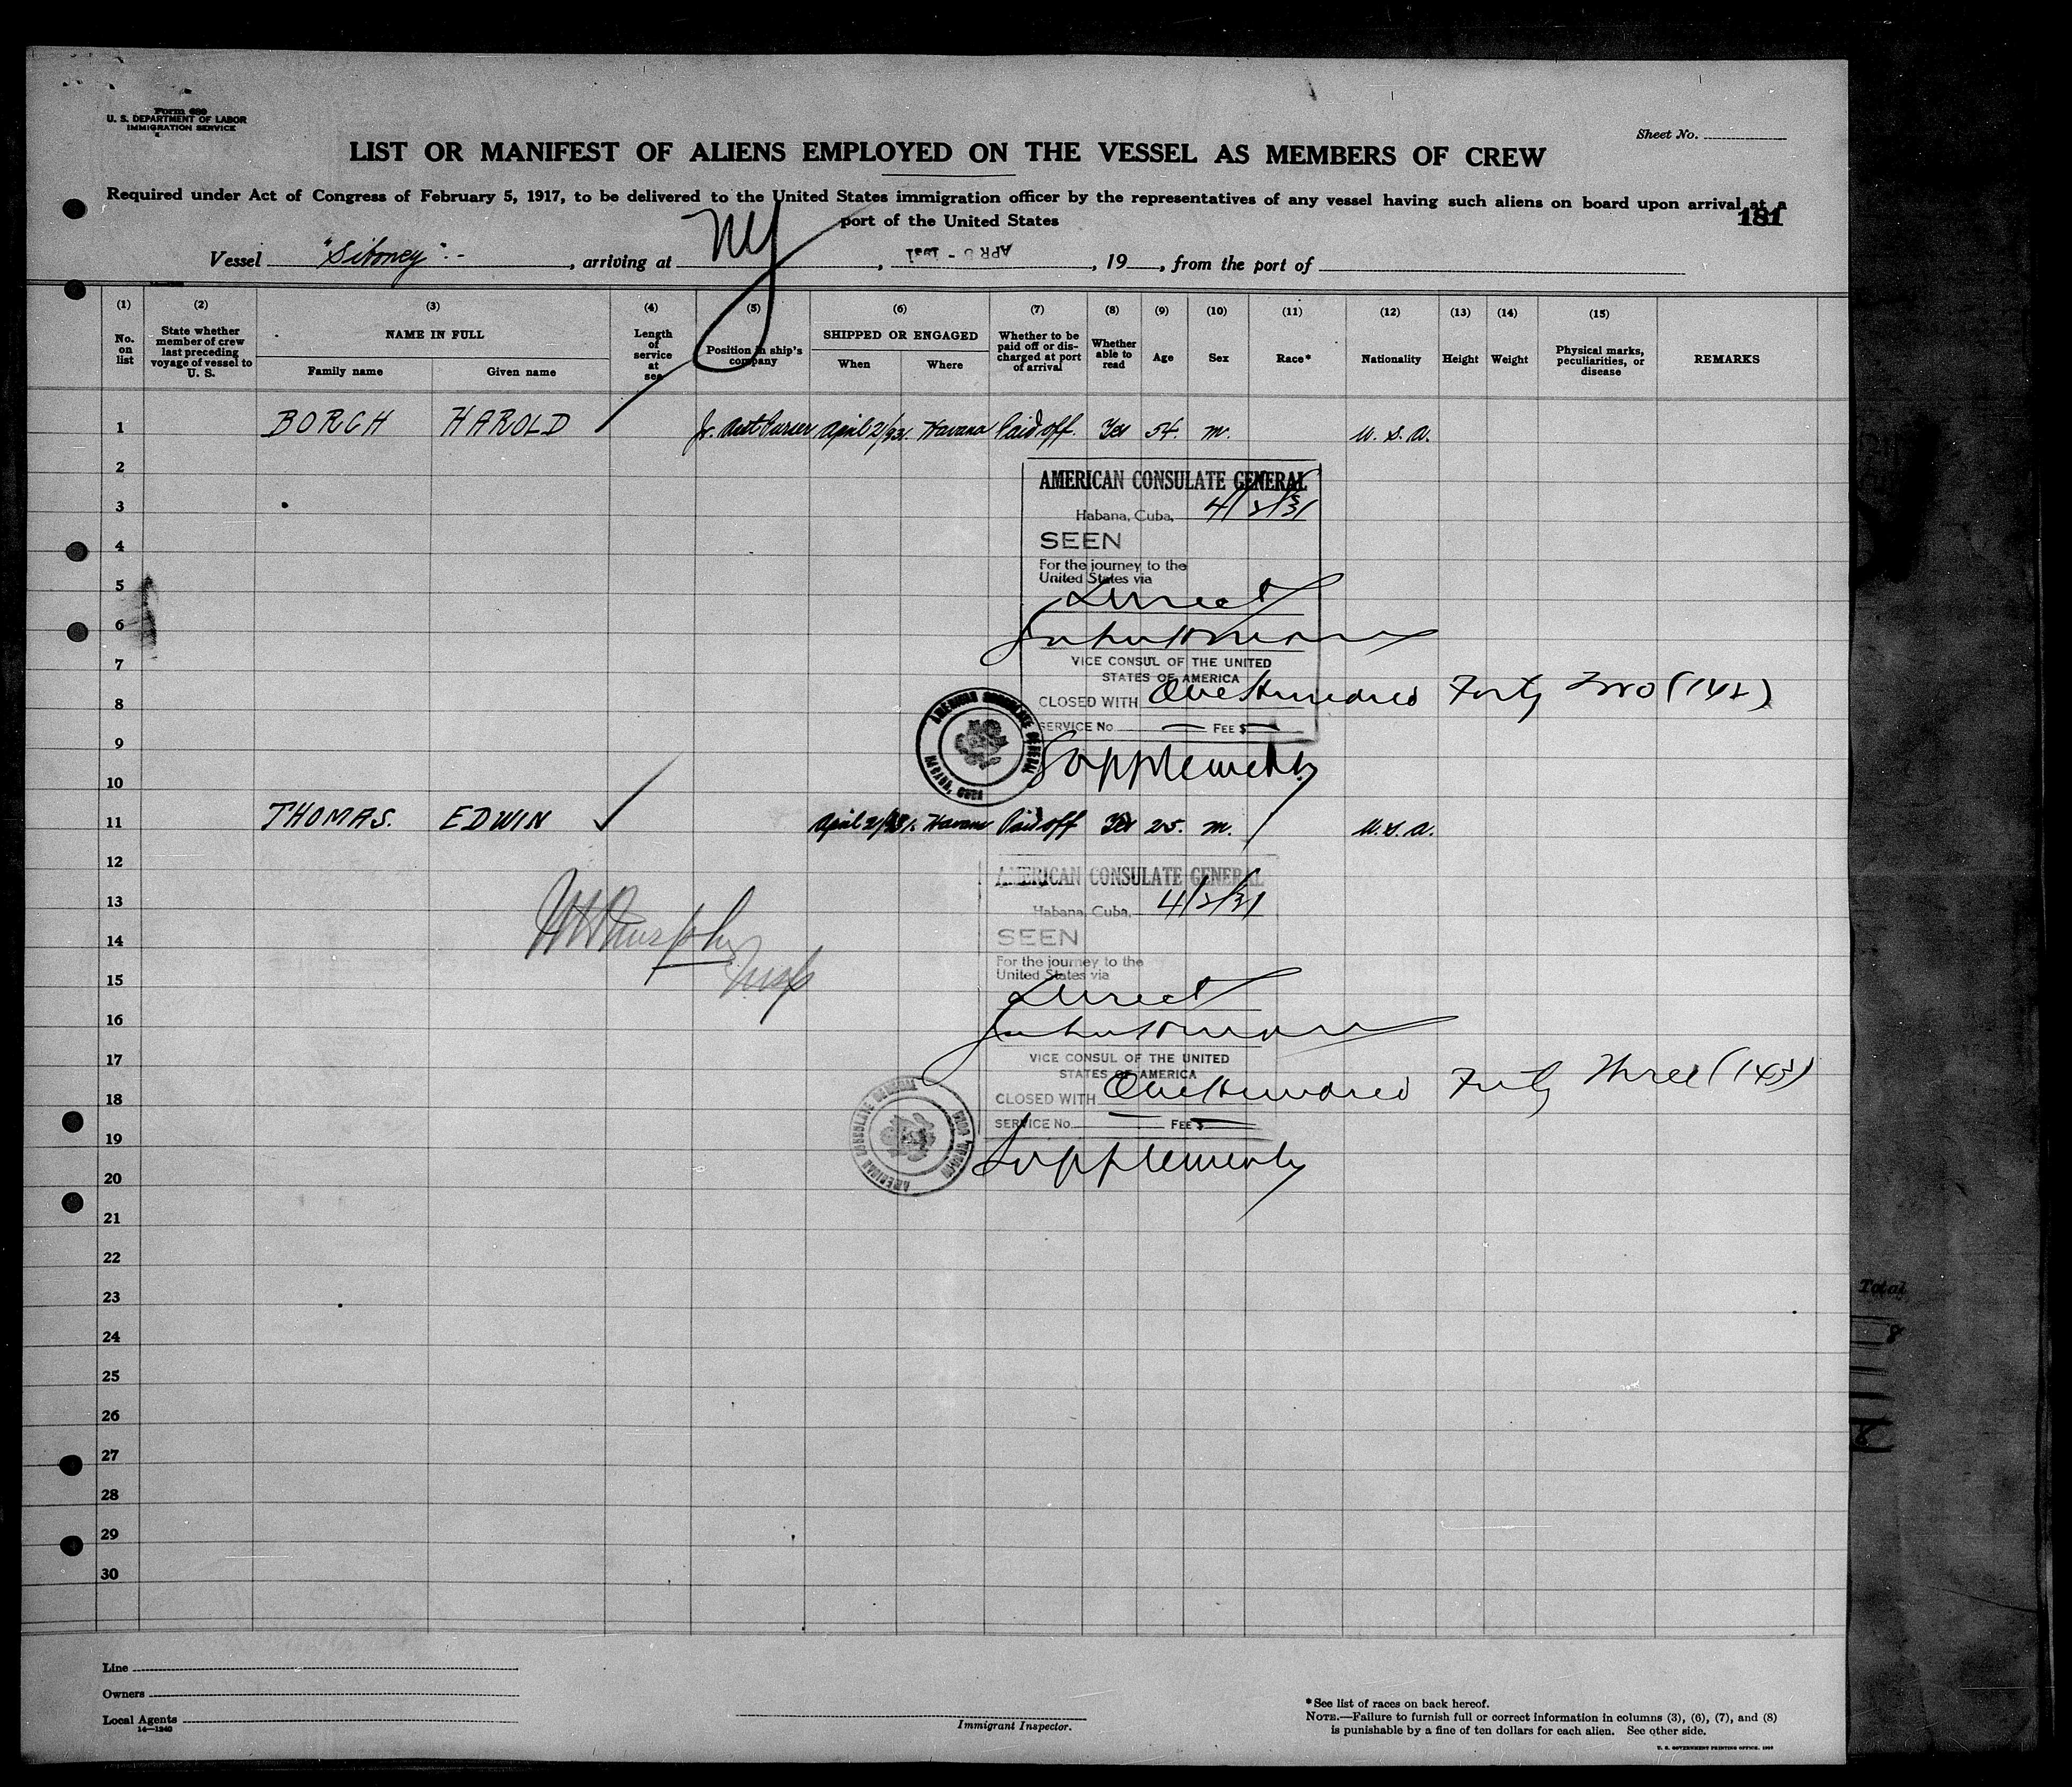 Form 689
U. S. DEPARTMENT OF LABOR
IMMIGRATION SERVICE
Sheet No.
LIST OR MANIFEST OF ALIENS EMPLOYED ON THE VESSEL AS MEMBERS OF CREW
Required under Act of Congress of February 5, 1917, to be delivered to the United States immigration officer by the representatives of any vessel having such aliens on board upon arrival at a
port of the United States
181
Vessel "Siboney", arriving at NY, APR, 19, from the port of
(1) (2) (3) (4) (5) (6) (7) (8) (9) (10) (11) (12) (13) (14) (15)
No. on list
State whether member of crew last preceding voyage of vessel to U. S.
NAME IN FULL
Family name
Given name
Length of service at sea
Position in ship's company
SHIPPED OR ENGAGED
When
Where
Whether to be paid off or discharged at port of arrival
Whether able to read
Age
Sex
Race*
Nationality
Height
Weight
Physical marks, peculiarities, or disease
REMARKS
1 BORCH HAROLD Jr. Asst Purser April 2/931. Havana Paid off. Yes 54. m. U. S. A.
2
AMERICAN CONSULATE GENERAL
3
Habana, Cuba, 4/2/31
4
SEEN
For the journey to the
5
United States via
Direct
6
7
VICE CONSUL OF THE UNITED
STATES OF AMERICA
8
CLOSED WITH One Hundred Forty Two (142)
SERVICE No FEE $
AMERICAN CONSULATE GENERAL HABANA, CUBA
9
Supplements
10
11 THOMAS. EDWIN April 2/931. Havana Paid off Yes 25. m. U. S. A.
12
AMERICAN CONSULATE GENERAL
13
Habana, Cuba, 4/2/31
14
SEEN
Murphy
Insp
For the journey to the
15
United States via
Direct
16
17
VICE CONSUL OF THE UNITED
STATES OF AMERICA
18
CLOSED WITH One Hundred Forty Three (143)
19
SERVICE No. FEE $
AMERICAN CONSULATE GENERAL HABANA, CUBA
Supplements
20
21
22
23
24
25
26
27
28
29
30
Total
8
Line
Owners
Local Agents
14—1240
Immigrant Inspector.
*See list of races on back hereof.
NOTE.—Failure to furnish full or correct information in columns (3), (6), (7), and (8)
is punishable by a fine of ten dollars for each alien. See other side.
U. S. GOVERNMENT PRINTING OFFICE.